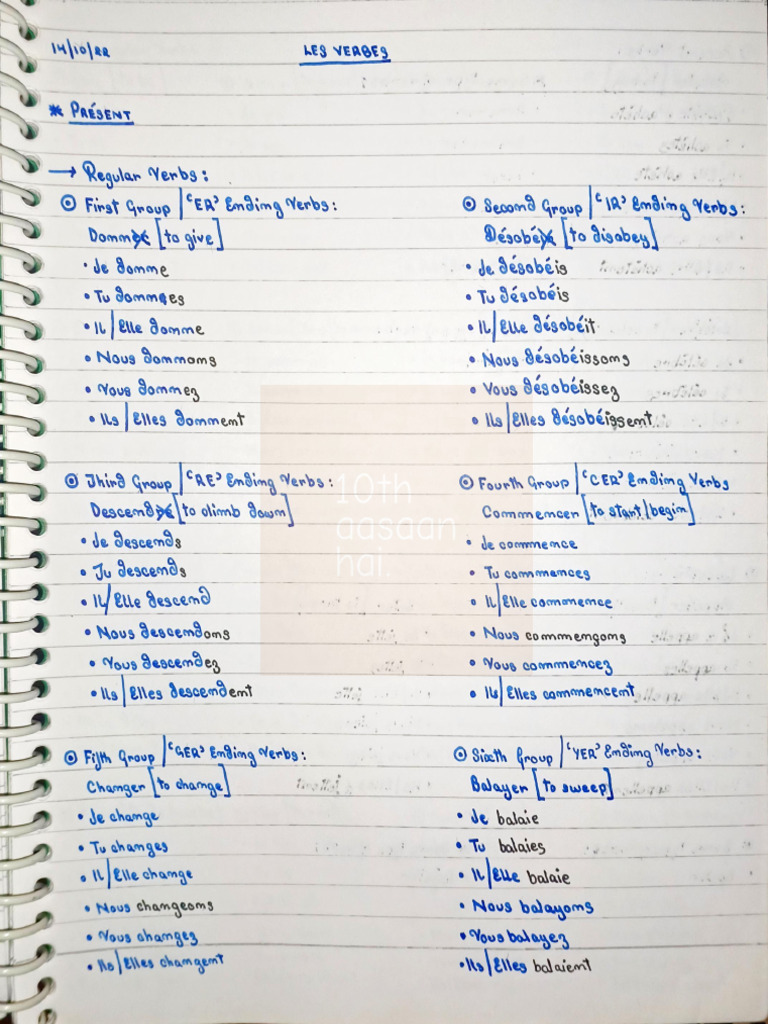 14/10/22
LES VERBES
* PRÉSENT
→ Regular Verbs:
First Group | 'ER' Ending Verbs:
Donner [to give]
• Je donne
• Tu donnes
• Il/Elle donne
• Nous donnons
• Vous donnez
• Ils/Elles donnent
Second Group | 'IR' Ending Verbs:
Désobéir [to disobey]
• Je désobéis
• Tu désobéis
• Il/Elle désobéit
• Nous désobéissons
• Vous désobéissez
• Ils/Elles désobéissent
Third Group | 'RE' Ending Verbs:
Descendre [to climb down]
• Je descends
• Tu descends
• Il/Elle descend
• Nous descendons
• Vous descendez
• Ils/Elles descendent
Fourth Group | 'CER' Ending Verbs
Commencer [to start/begin]
• Je commence
• Tu commences
• Il/Elle commence
• Nous commençons
• Vous commencez
• Ils/Elles commencent
Fifth Group | 'GER' Ending Verbs:
Changer [to change]
• Je change
• Tu changes
• Il/Elle change
• Nous changeons
• Vous changez
• Ils/Elles changent
Sixth Group | 'YER' Ending Verbs:
Balayer [to sweep]
• Je balaie
• Tu balaies
• Il/Elle balaie
• Nous balayons
• Vous balayez
• Ils/Elles balaient
10th
aasaan
hai.